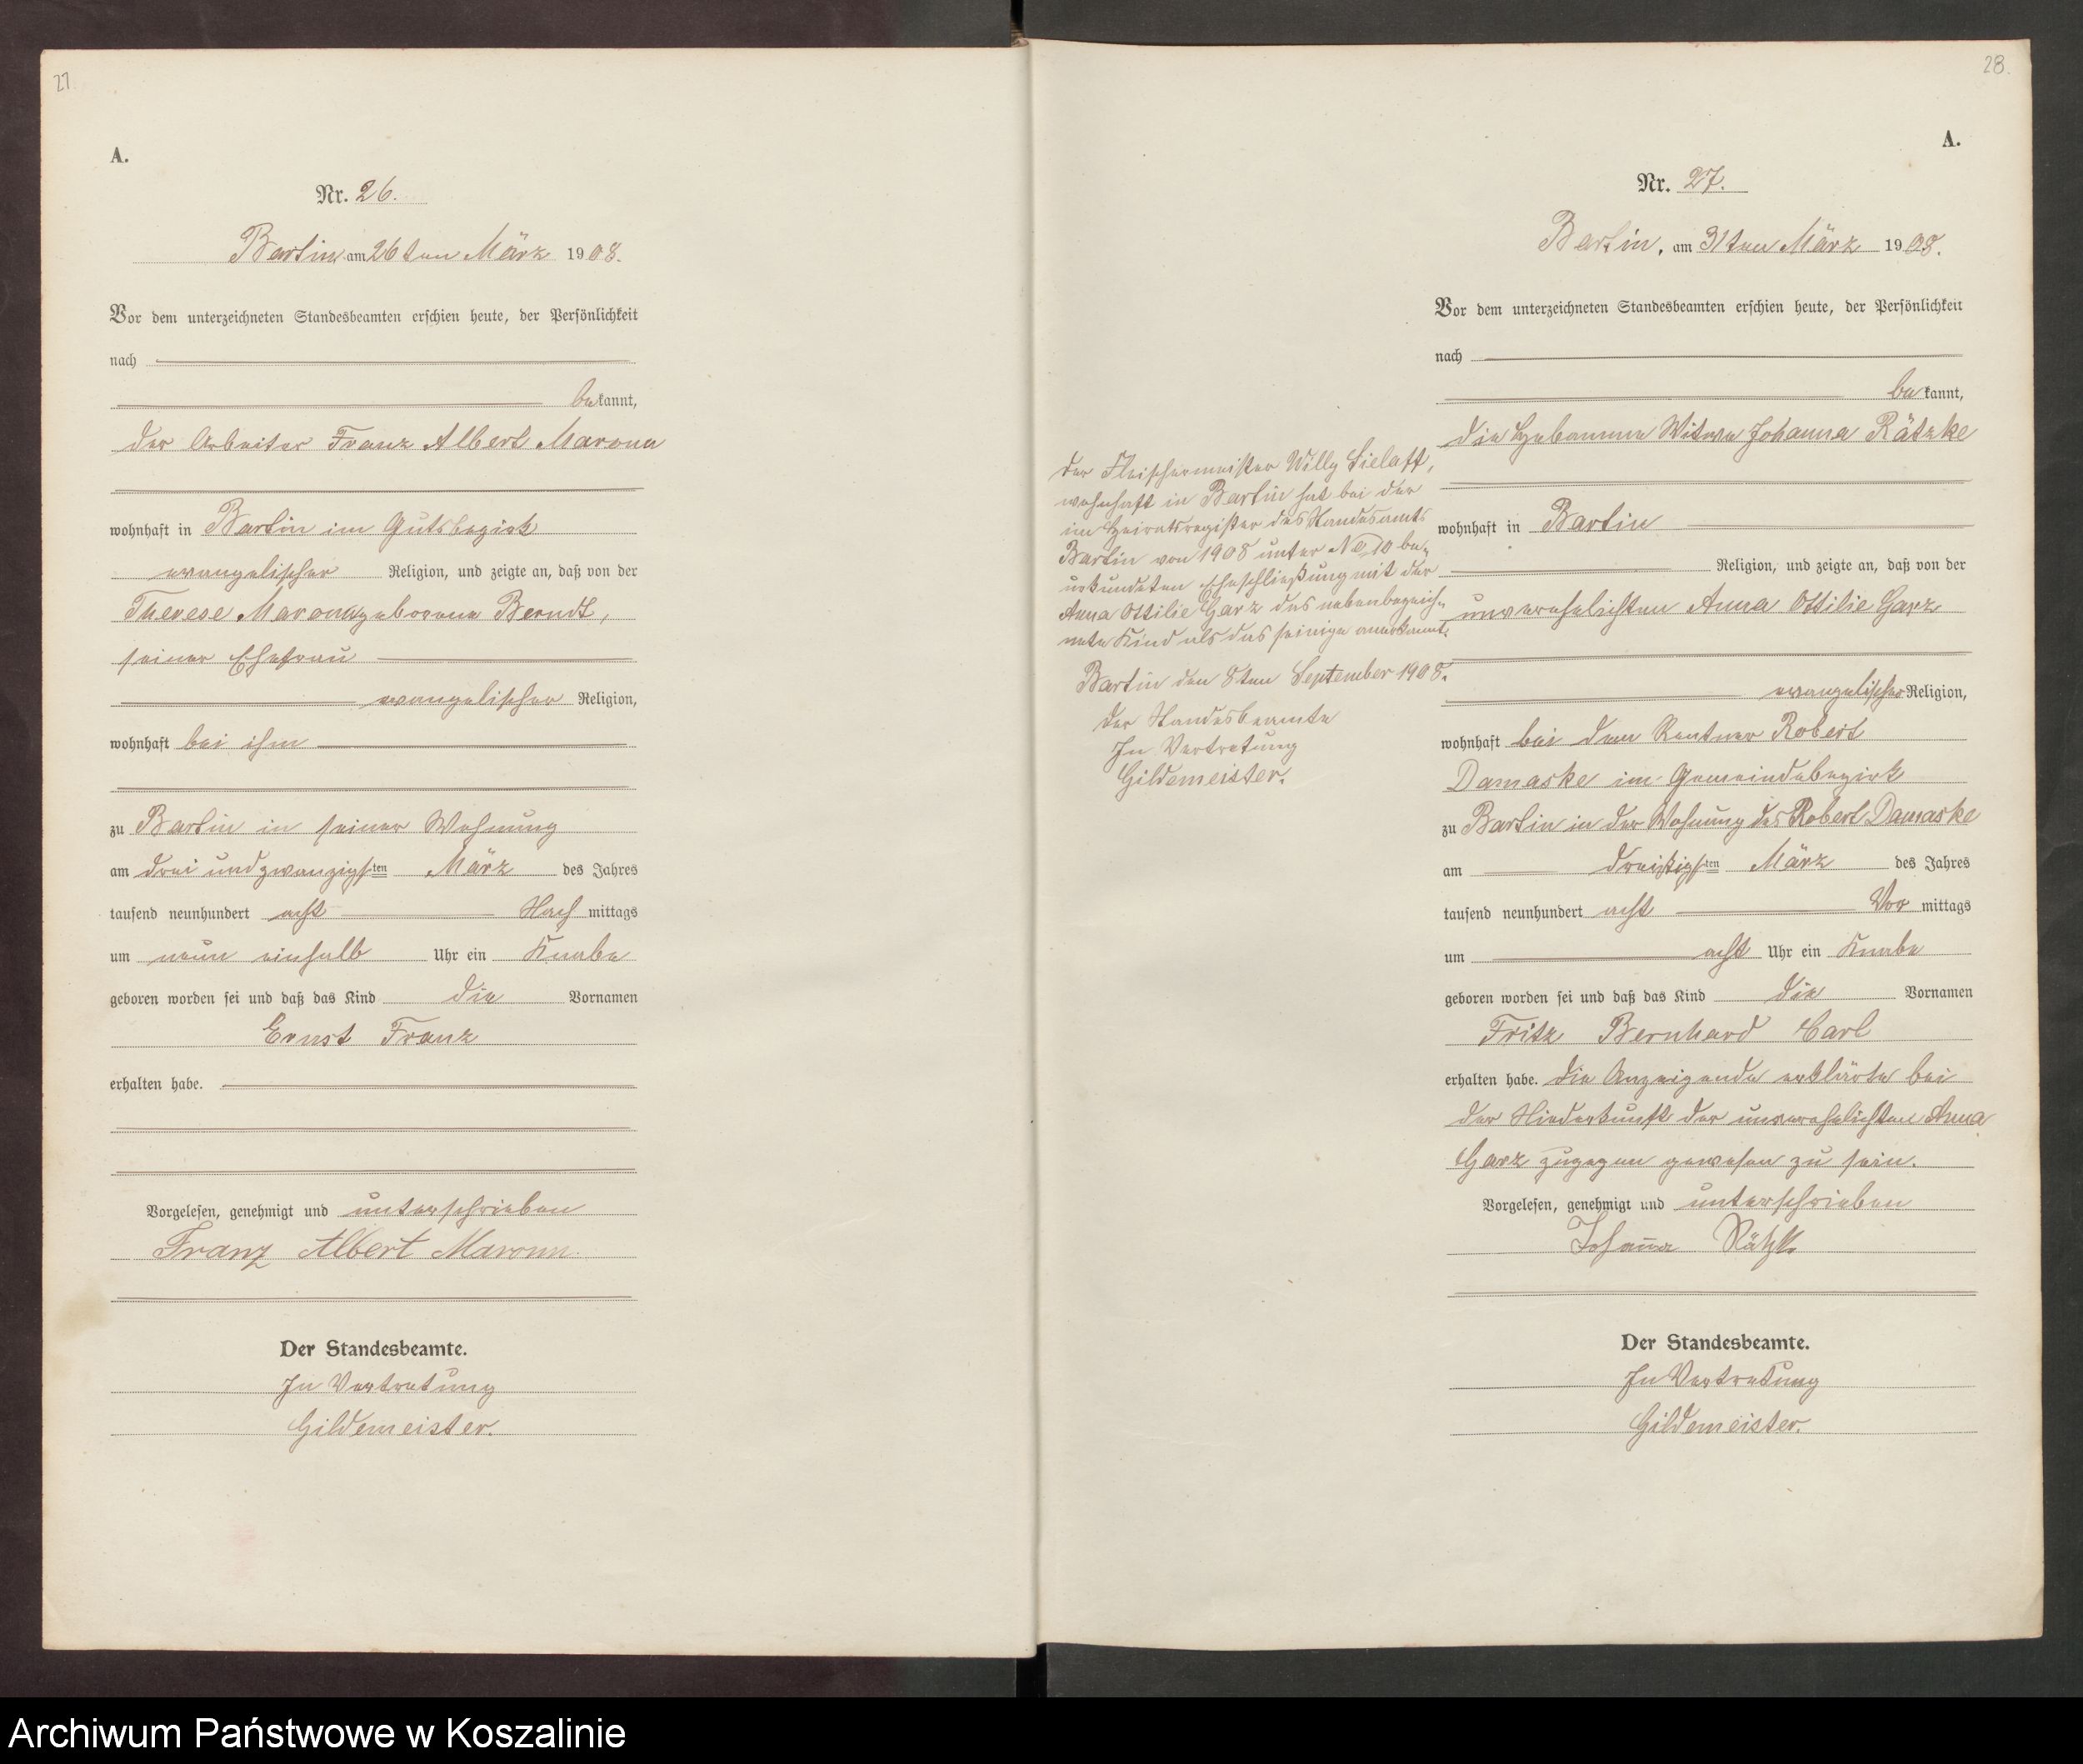 27.
A.
Nr. 26.
Bartin am 26ten März 1908.
Vor dem unterzeichneten Standesbeamten erschien heute, der Persönlichkeit
nach
bekannt,
der Arbeiter Franz Albert Maronn
wohnhaft in Bartin im Gutsbezirk
evangelischer Religion, und zeigte an, daß von der
Therese Maronn geborene Berndt,
seiner Ehefrau
evangelischer Religion,
wohnhaft bei ihm
zu Bartin in seiner Wohnung
am drei und zwanzigsten März des Jahres
tausend neunhundert acht Nachmittags
um neun einhalb Uhr ein Knabe
geboren worden sei und daß das Kind die Vornamen
Ernst Franz
erhalten habe.
Vorgelesen, genehmigt und unterschrieben
Franz Albert Maronn.
Der Standesbeamte.
In Vertretung
Gildemeister.
28.
A.
Nr. 27.
Bartin, am 31ten März 1908.
Vor dem unterzeichneten Standesbeamten erschien heute, der Persönlichkeit
nach
bekannt,
die Hebamme Witwe Johanna Rätzke
wohnhaft in Bartin
Religion, und zeigte an, daß von der
unverehelichten Anna Ottilie Garz
evangelischer Religion,
wohnhaft bei dem Rentner Robert
Damaske im Gemeindebezirk
zu Bartin in der Wohnung des Robert Damaske
am dreißigsten März des Jahres
tausend neunhundert acht Vormittags
um acht Uhr ein Knabe
geboren worden sei und daß das Kind die Vornamen
Fritz Bernhard Carl
erhalten habe. Die Anzeigende erklärte bei
der Niederkunft der unverehelichten Anna
Garz zugegen gewesen zu sein.
Vorgelesen, genehmigt und unterschrieben
Johanna Rätzke
Der Standesbeamte.
In Vertretung
Gildemeister.
Der Fleischermeister Willy Sielaff,
wohnhaft in Bartin hat bei der
im Heiratsregister des Standesamts
Bartin von 1908 unter No 10 be-
urkundeten Eheschließung mit der
Anna Ottilie Garz das nebenbezeich-
nete Kind als das seinige anerkannt.
Bartin den 8ten September 1908.
Der Standesbeamte
In Vertretung
Gildemeister.
Archiwum Państwowe w Koszalinie